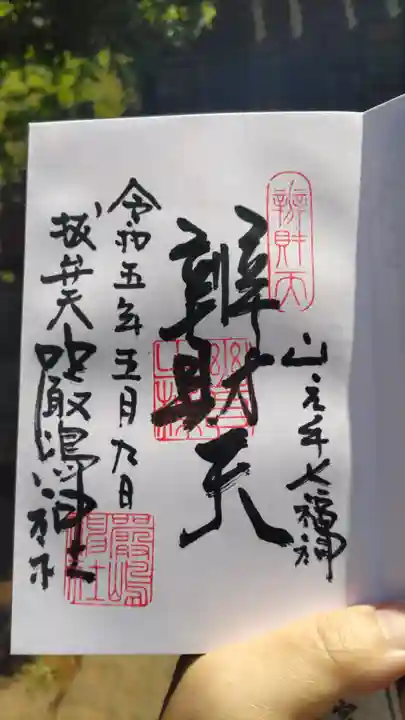 山の手七福神
辨財天
辨財天
令和五年五月九日
抜弁天
嚴嶋神社
嚴嶋神社